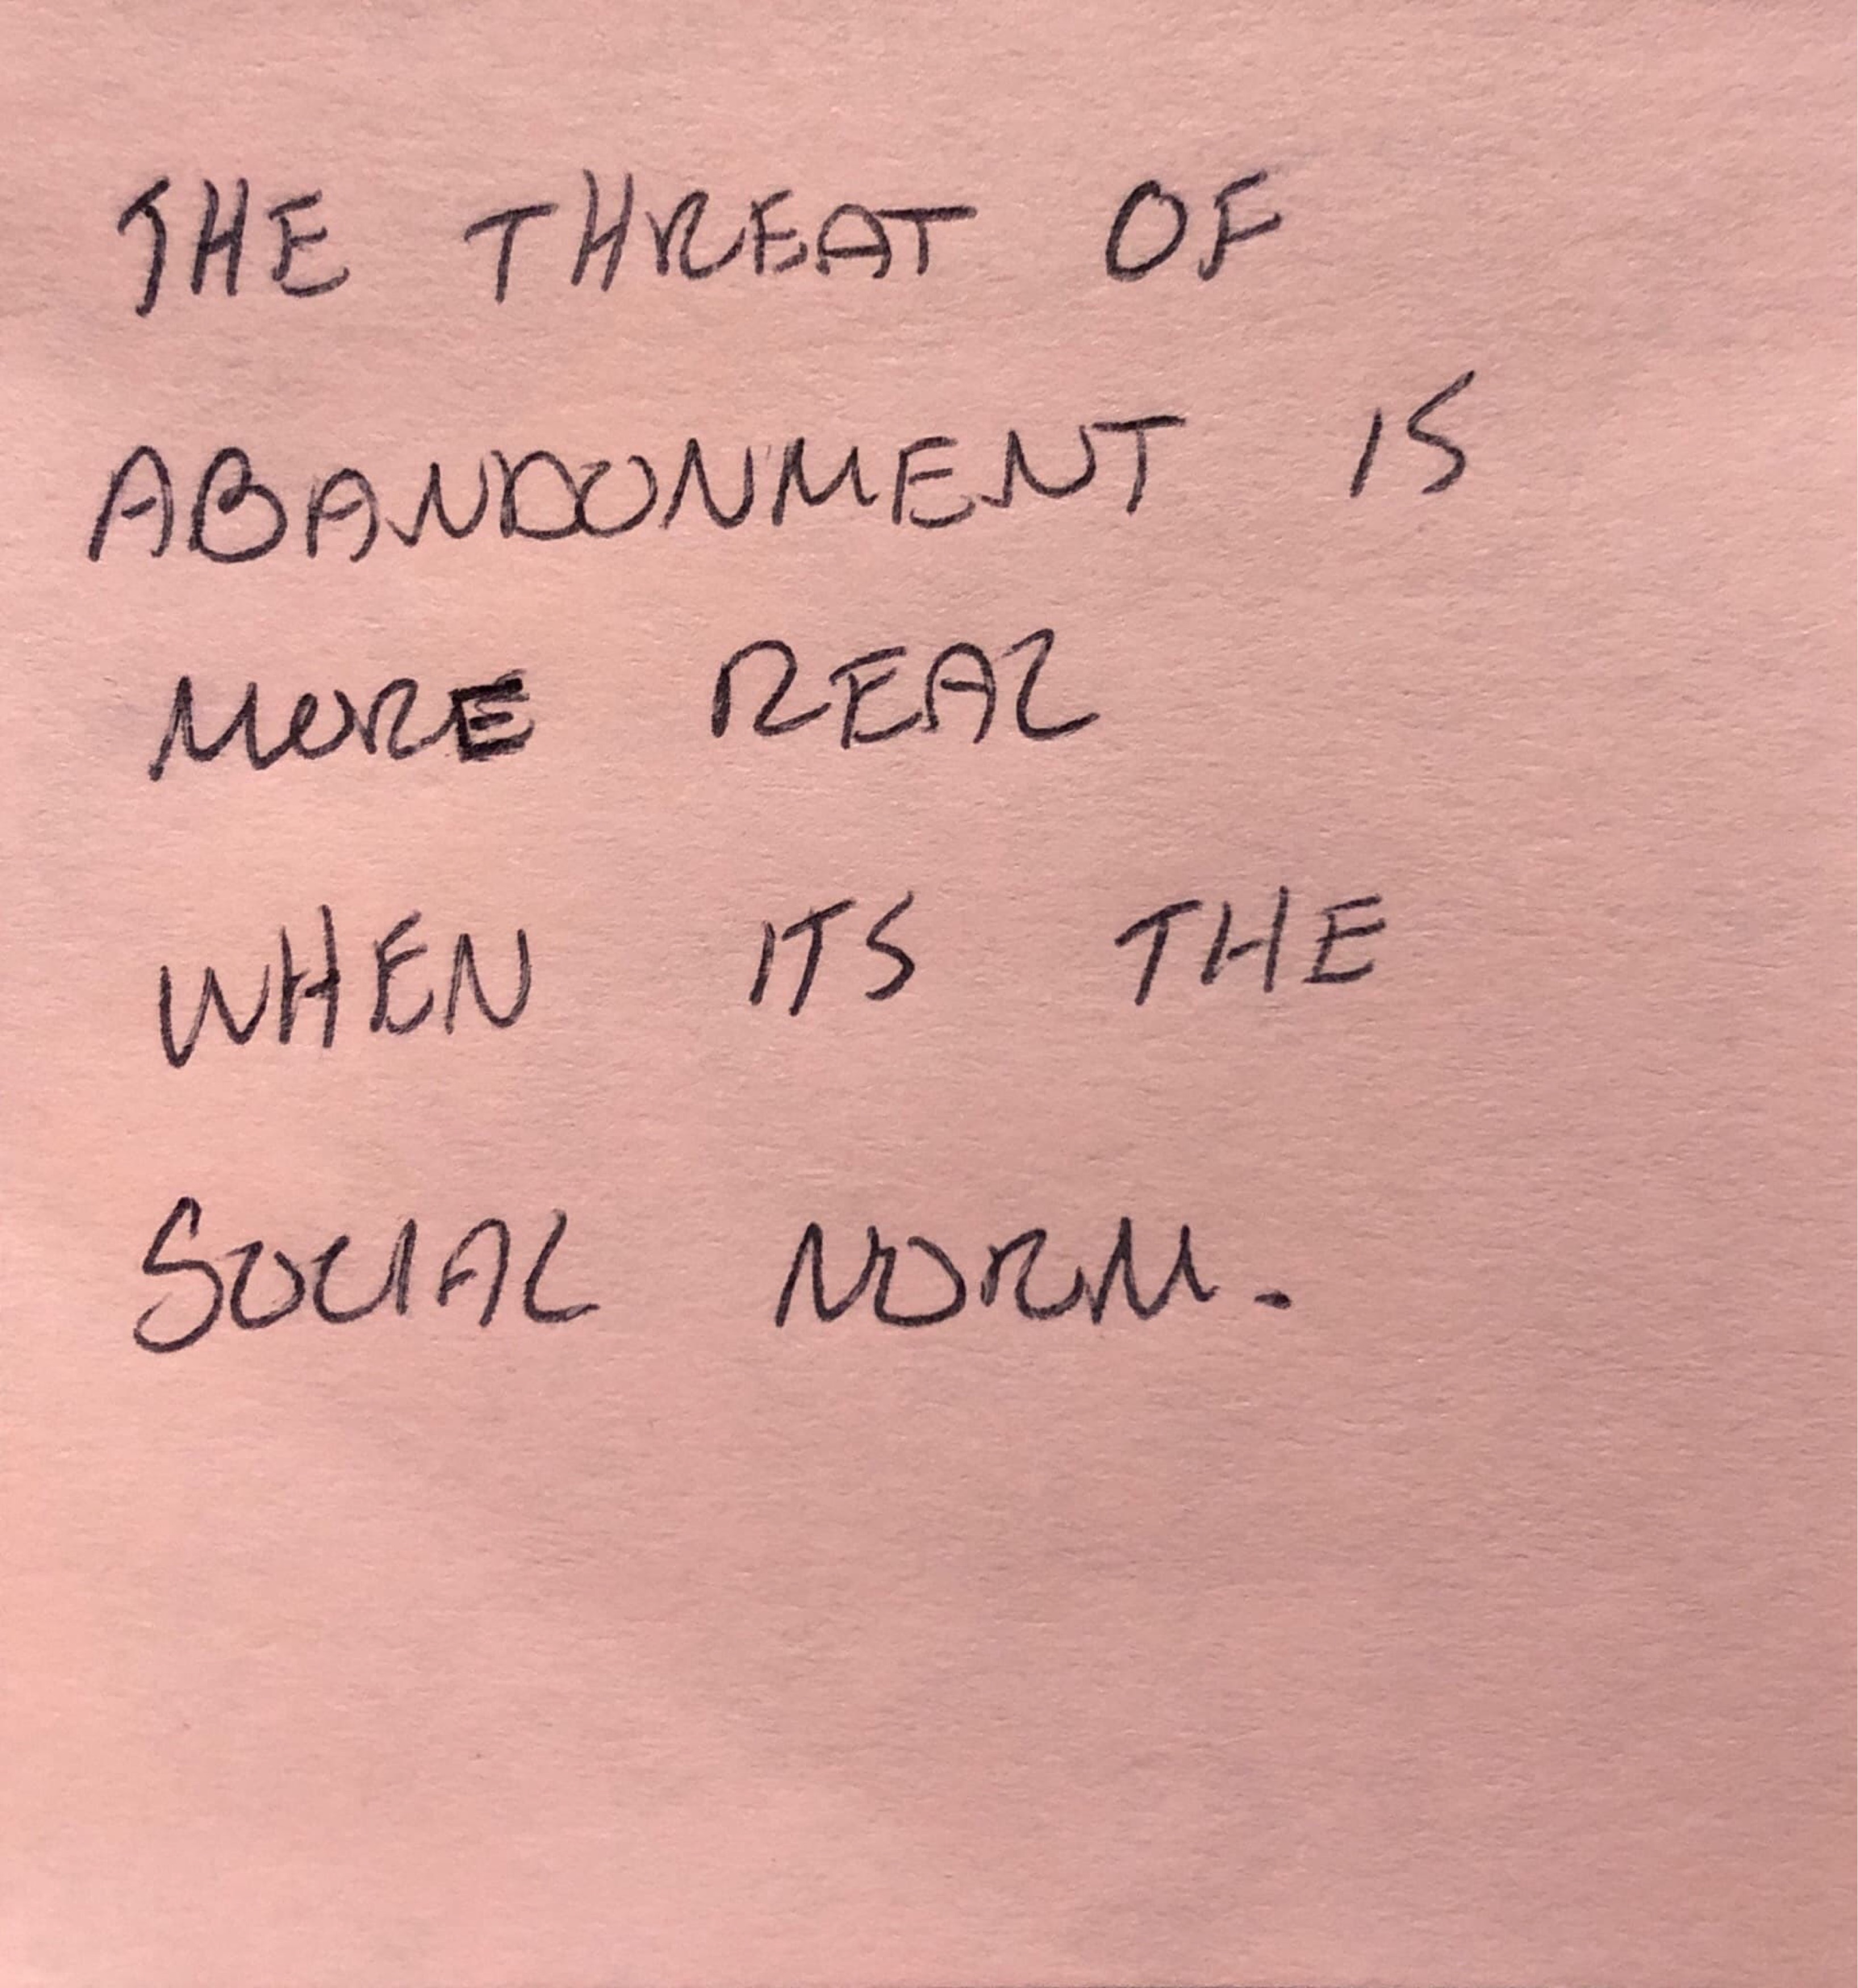 THE THREAT OF
ABANDONMENT IS
MORE REAL
WHEN ITS THE
SOCIAL NORM.